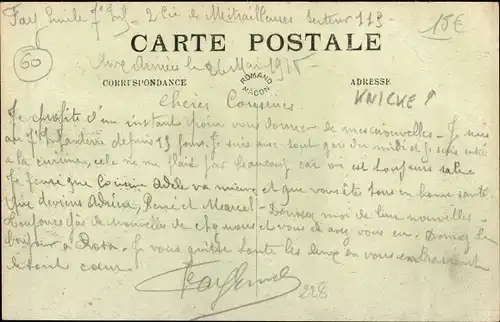 Fay Emile 7e Inf - 2 Cie de Mitrailleuses Secteur 113 -
15€
60
CARTE POSTALE
Aux Armées le 26 Mai 1915 -
ROMANO
MACON
CORRESPONDANCE
ADRESSE
KNICKE!
Chères Cousines
Je profite d'un instant pour vous donner de mes nouvelles - Je suis
au 7e Infanterie depuis 19 jours. Je suis avec tout gars du midi et je suis
a la cuisines, cela ne me plait pas beaucoup car on est toujours sale
Je pense que Cousine Adèle va mieux, et que vous êtes tous en bonne santé.
Que deviens Adricia, René et Marcel - Donnez moi de leur nouvelles -
Toujours pas de nouvelles de chez nous et vous en avez vous eu. Donnez le
bonjour à Rosa. Je vous quitte toute les deux en vous embrassant
de tout cœur
Fay Emile
228